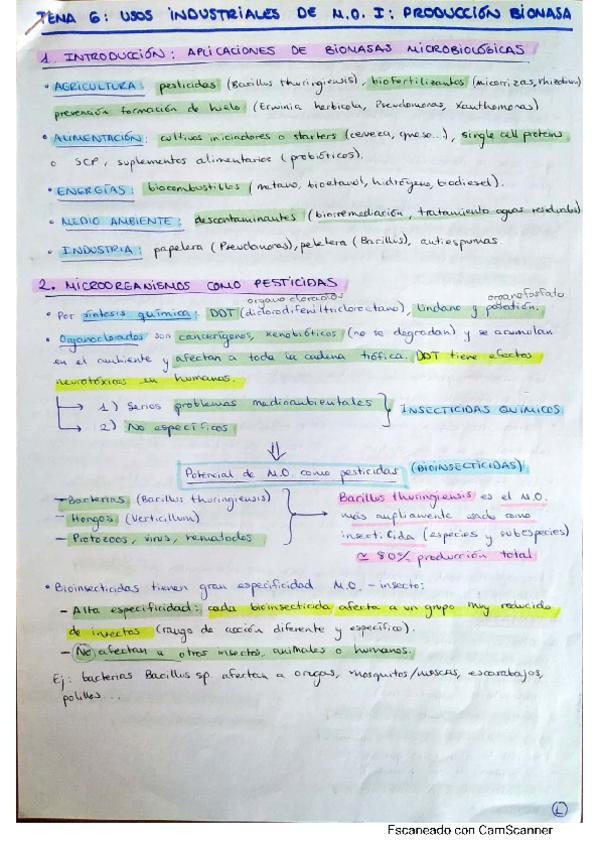 TEMA 6: USOS INDUSTRIALES DE M.O. I: PRODUCCIÓN BIOMASA
1. INTRODUCCIÓN: APLICACIONES DE BIOMASAS MICROBIOLÓGICAS
• AGRICULTURA: pesticidas (Bacillus thuringiensis), biofertilizantes (micorrizas, rhizobium)
prevención formación de hielo (Erwinia herbicola, Pseudomonas, Xanthomonas)
• ALIMENTACIÓN: cultivos iniciadores o starters (cerveza, queso...), single cell proteins
o SCP, suplementos alimentarios (probióticos).
• ENERGÍAS: biocombustibles (metano, bioetanol, hidrógeno, biodiesel).
• MEDIO AMBIENTE: descontaminantes (biorremediación, tratamiento aguas residuales)
• INDUSTRIA: papelera (Pseudomonas), peletera (Bacillus), antiespumas.
2. MICROORGANISMOS COMO PESTICIDAS
organoclorados organofosfato
• Por síntesis química: DDT (diclorodifeniltricloroetano), lindano y paratión.
• Organoclorados son cancerígenos, xenobióticos (no se degradan) y se acumulan
en el ambiente y afectan a toda la cadena trófica. DDT tiene efectos
neurotóxicos en humanos.
→ 1) Serios problemas medioambientales
→ 2) No específicos
INSECTICIDAS QUÍMICOS
⇓
Potencial de M.O. como pesticidas (BIOINSECTICIDAS)
– Bacterias (Bacillus thuringiensis)
– Hongos (Verticillum)
– Protozoos, virus, nematodos
→ Bacillus thuringiensis es el M.O.
más ampliamente usado como
insecticida (especies y subespecies)
≃ 80% producción total
• Bioinsecticidas tienen gran especificidad M.O. – insecto:
– Alta especificidad: cada bioinsecticida afecta a un grupo muy reducido
de insectos (rango de acción diferente y específico).
– No afectan a otros insectos, animales o humanos.
Ej: bacterias Bacillus sp. afectan a orugas, mosquitos/moscas, escarabajos,
polillas...
1
Escaneado con CamScanner